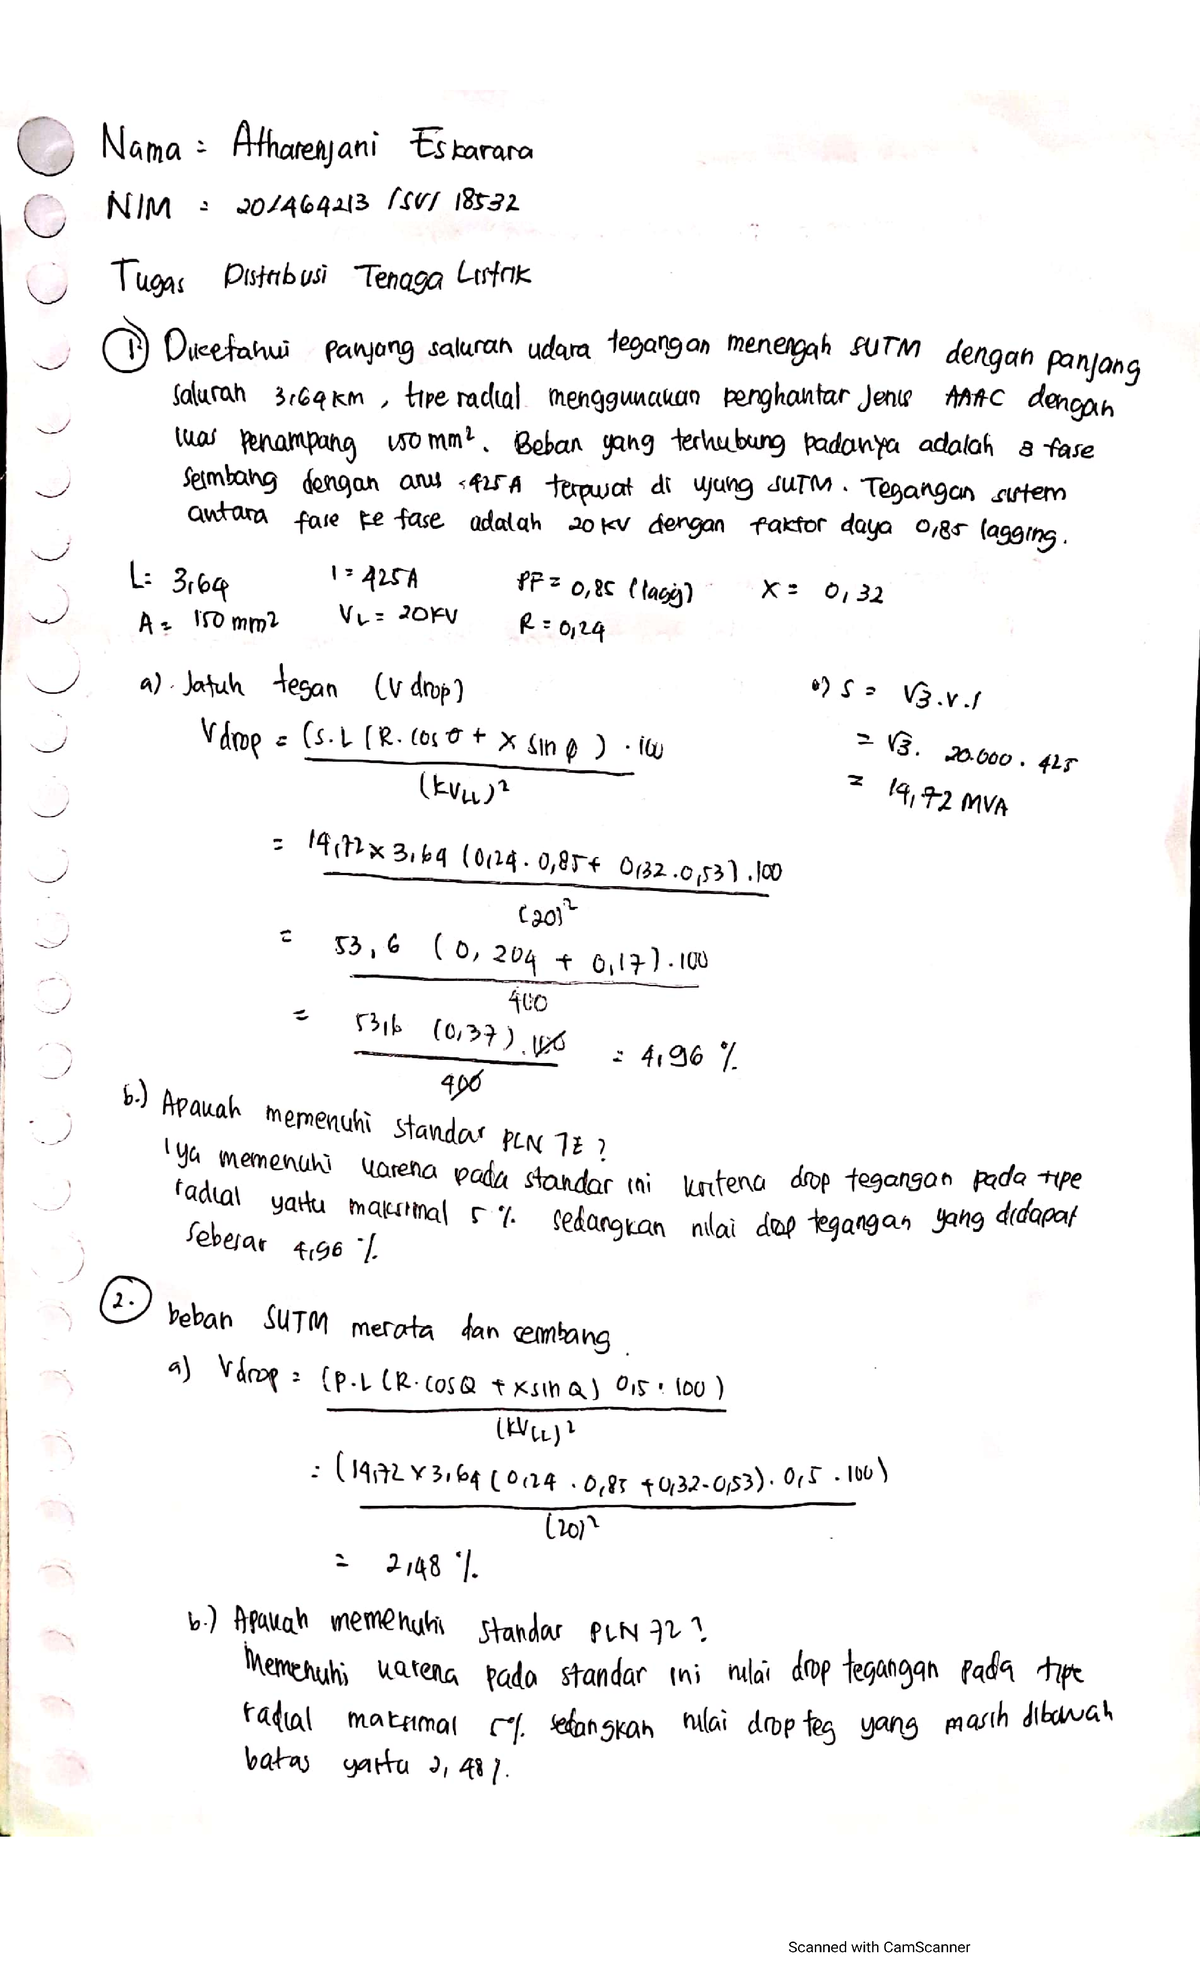 Nama : Atharenjani Eskarara
NIM : 20/464213 /SV/ 18532
Tugas Distribusi Tenaga Listrik
1. Diketahui panjang saluran udara tegangan menengah SUTM dengan panjang
saluran 3,64 km, tipe radial menggunakan penghantar Jenis AAAC dengan
luas penampang 150 mm². Beban yang terhubung padanya adalah 3 fase
Seimbang dengan arus 425 A terpusat di ujung SUTM. Tegangan sistem
antara fase ke fase adalah 20 KV dengan faktor daya 0,85 lagging.
L = 3,64 I = 425 A PF = 0,85 (lagg) X = 0,32
A = 150 mm2 VL = 20KV R = 0,24
a). Jatuh tegan (V drop)
Vdrop = (S.L (R. cos θ + X sin φ) . 100
(kVLL)²
•) S = √3.V.I
= √3. 20.000. 425
= 14,72 MVA
= 14,72 x 3,64 (0,24. 0,85 + 0,32.0,53).100
(20)²
= 53,6 (0,204 + 0,17).100
400
= 53,6 (0,37).100 = 4,96 %
400
b.) Apakah memenuhi standar PLN 72 ?
Iya memenuhi karena pada standar ini kriteria drop tegangan pada tipe
radial yaitu maksimal 5 % sedangkan nilai drop tegangan yang didapat
Sebesar 4,96 %
2. beban SUTM merata dan seimbang.
a) Vdrop = (P.L (R.cos Q + x sin Q) 0,5 . 100)
(KVLL)²
= (14,72 x 3,64 (0,24 . 0,85 + 0,32.0,53). 0,5 . 100)
(20)²
= 2,48 %.
b.) Apakah memenuhi standar PLN 72 ?
Memenuhi karena pada standar ini nilai drop tegangan pada tipe
radial maksimal 5%. sedangkan nilai drop teg yang masih dibawah
batas yaitu 2,48 %.
Scanned with CamScanner